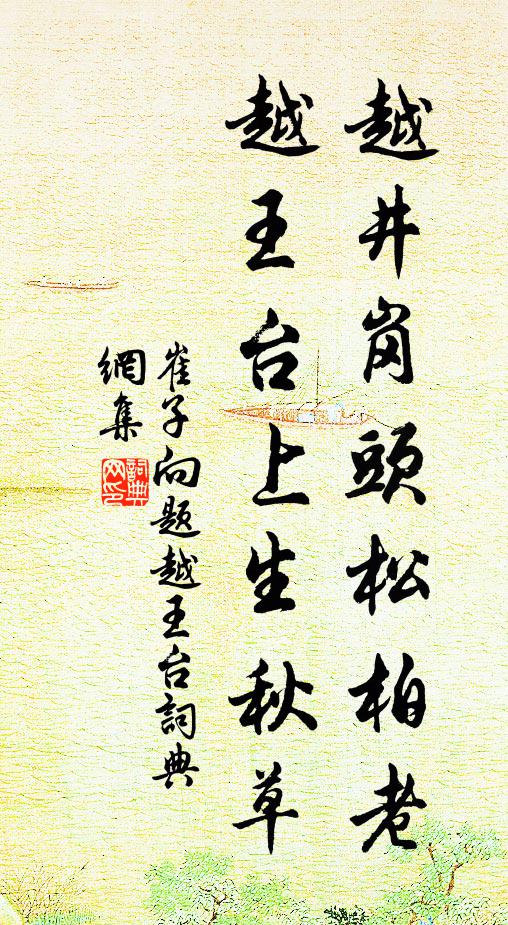 越井岗頭松柏老
越王台上生秋草
崔子向题越王台詞典
網集
詞典
网印